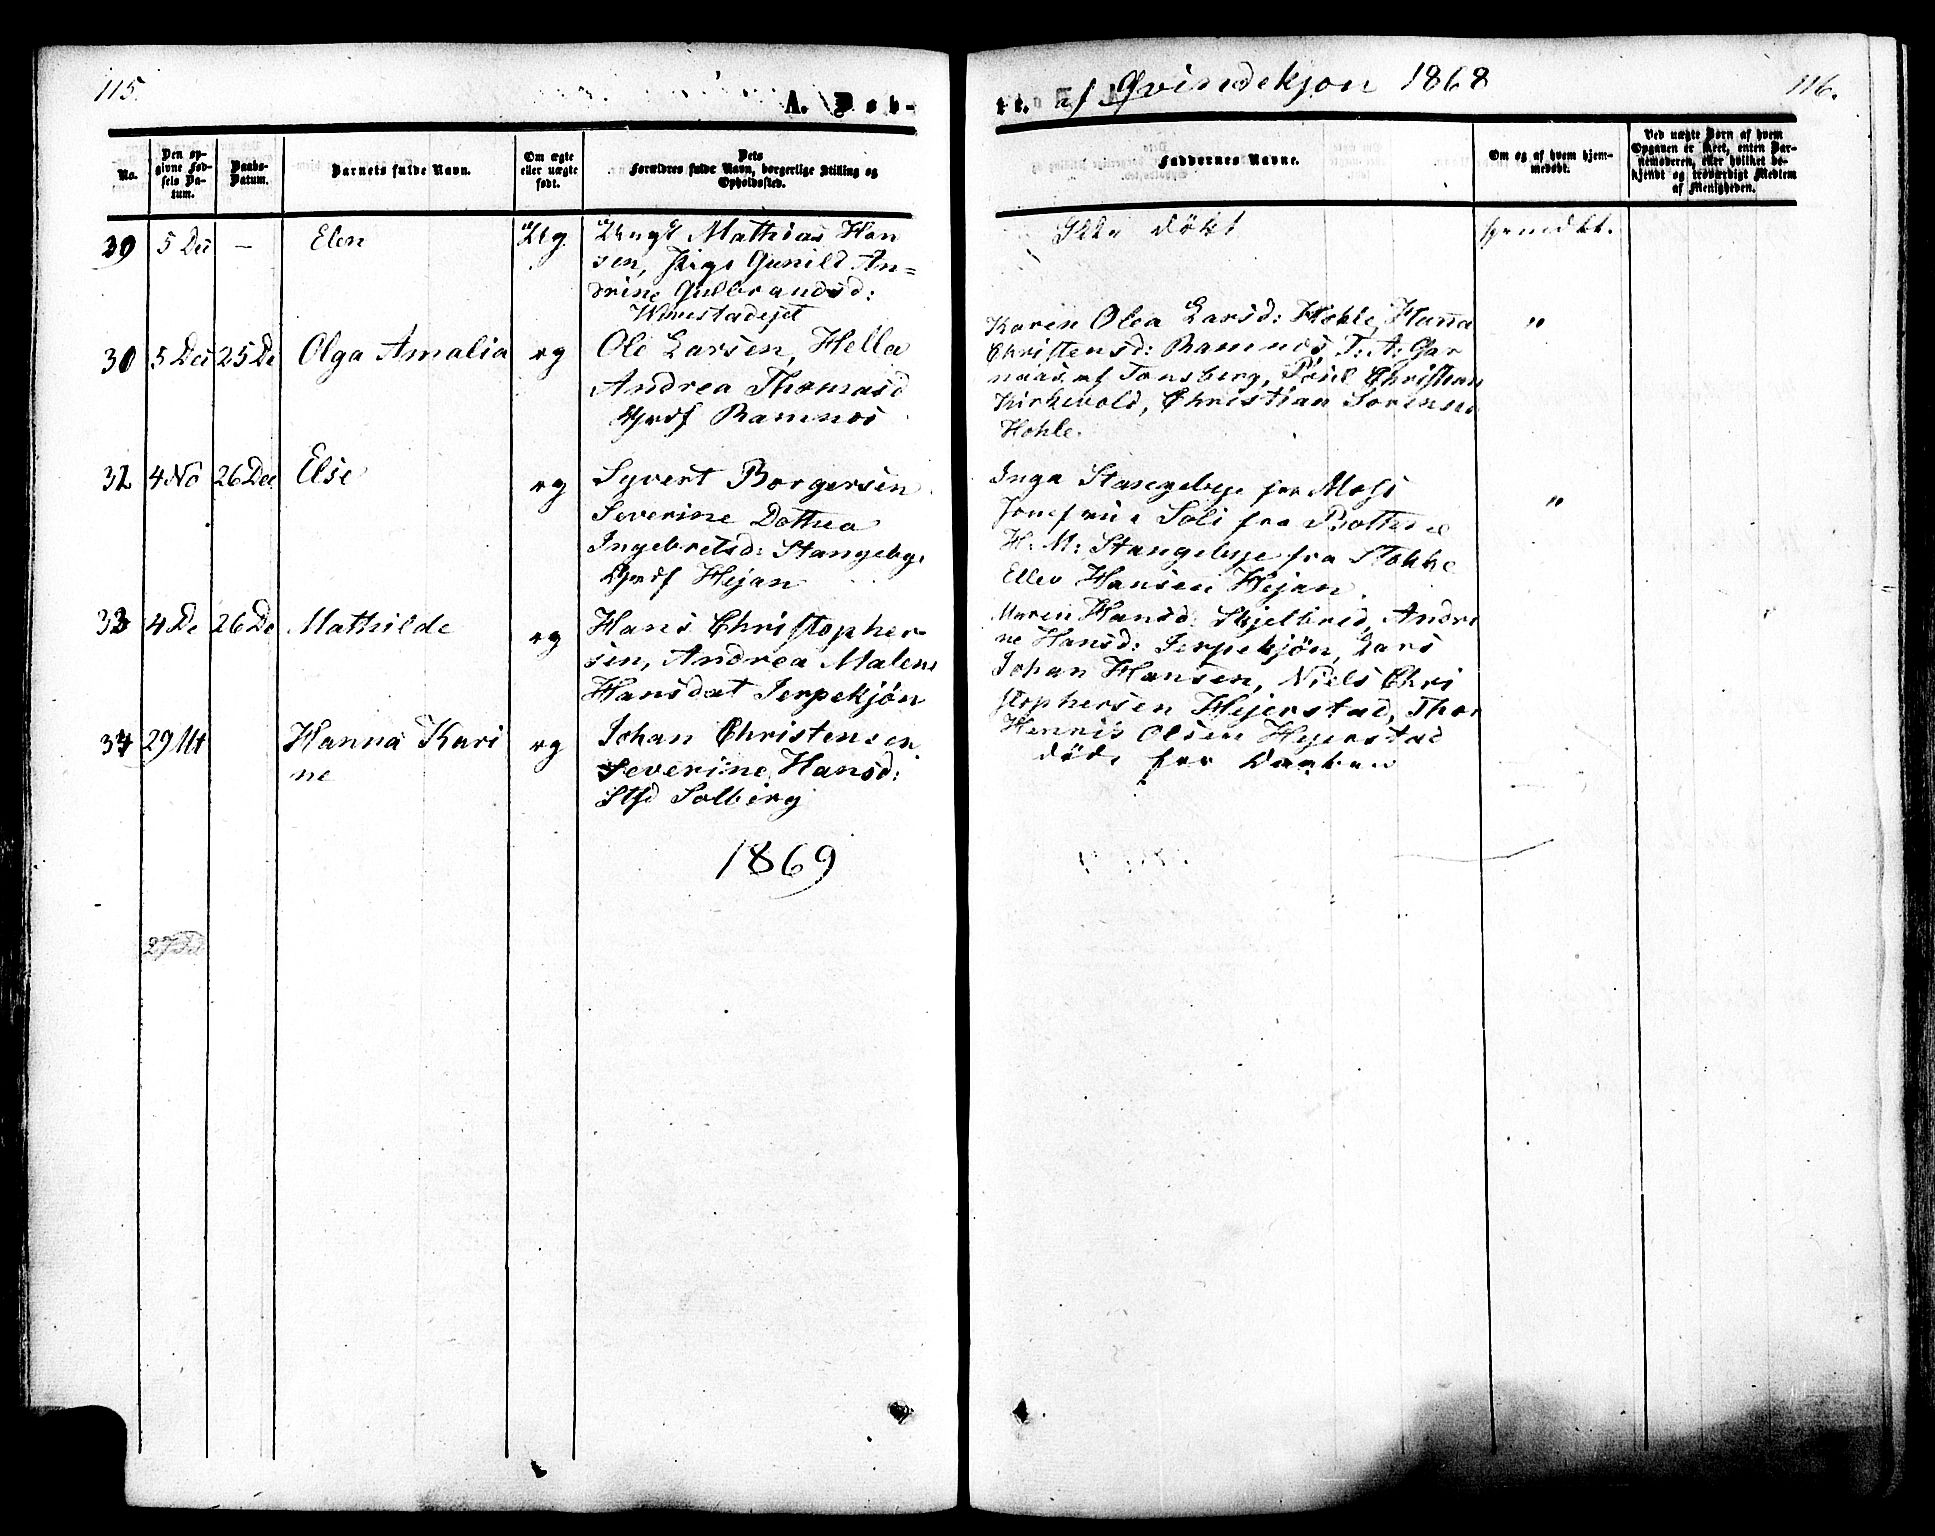 115.
A. Døb-
te. af Qvindekjøn 1868
116.
No.
Den op-
givne Fød-
sels Da-
tum.
Daabs-
Datum.
Barnets fulde Navn.
Om ægte
eller uægte
født.
Dets
Forældres fulde Navn, borgerlige Stilling og
Opholdssted.
Faddernes Navne.
Om og af hvem hjem-
medøbt.
Ved uægte Børn af hvem
Opgaven er skeet, enten Bar-
nemoderen, eller hvilket be-
kjendt og troværdigt Medlem
af Menigheden.
5 De
—
Elen
Ueg
Ungk Mathias Han
sen, Pige Gunild An=
drine Gulbrandsd:
Ikke døbt
hjemdbt.
30
5 De
25 De
Olga Amalia
eg
Ole Larsen, Hella
Andrea Thomasd
Grdf Ramnes
Karen Olea Larsd: Hohle, Hanna
Christensd: Ramnes, T: A: Gar
naas af Tønsberg, Poul Christian
Kirkevold, Christian Sørensen
Hohle.
"
4 No
26 Dec
Else
eg
Syvert Borgersen
Severine Dothea
Ingebretsd: Stangeby.
Grdf Hejan
Inga Stangebye fra Moss
Josefine Soli fra Bottne
H: M: Stangebye fra Stokke
Ellev Hansen Hejan.
"
33
4 De
26 De
Mathilde
eg
Hans Christopher-
sen, Andrea Malene
Hansdat Jerpekjøn
Maren Hansd: Skjelbred, Andri
ne Hansd: Jerpekjøn, Lars
Johan Hansen, Niels Chri
stophersen Hejerstad, Thor
Henrik Olsen Hejerstad
34
29
Hanna Kari
ne
eg
Johan Christensen
Severine Hansd:
Solberg
døde før Daaben
1869